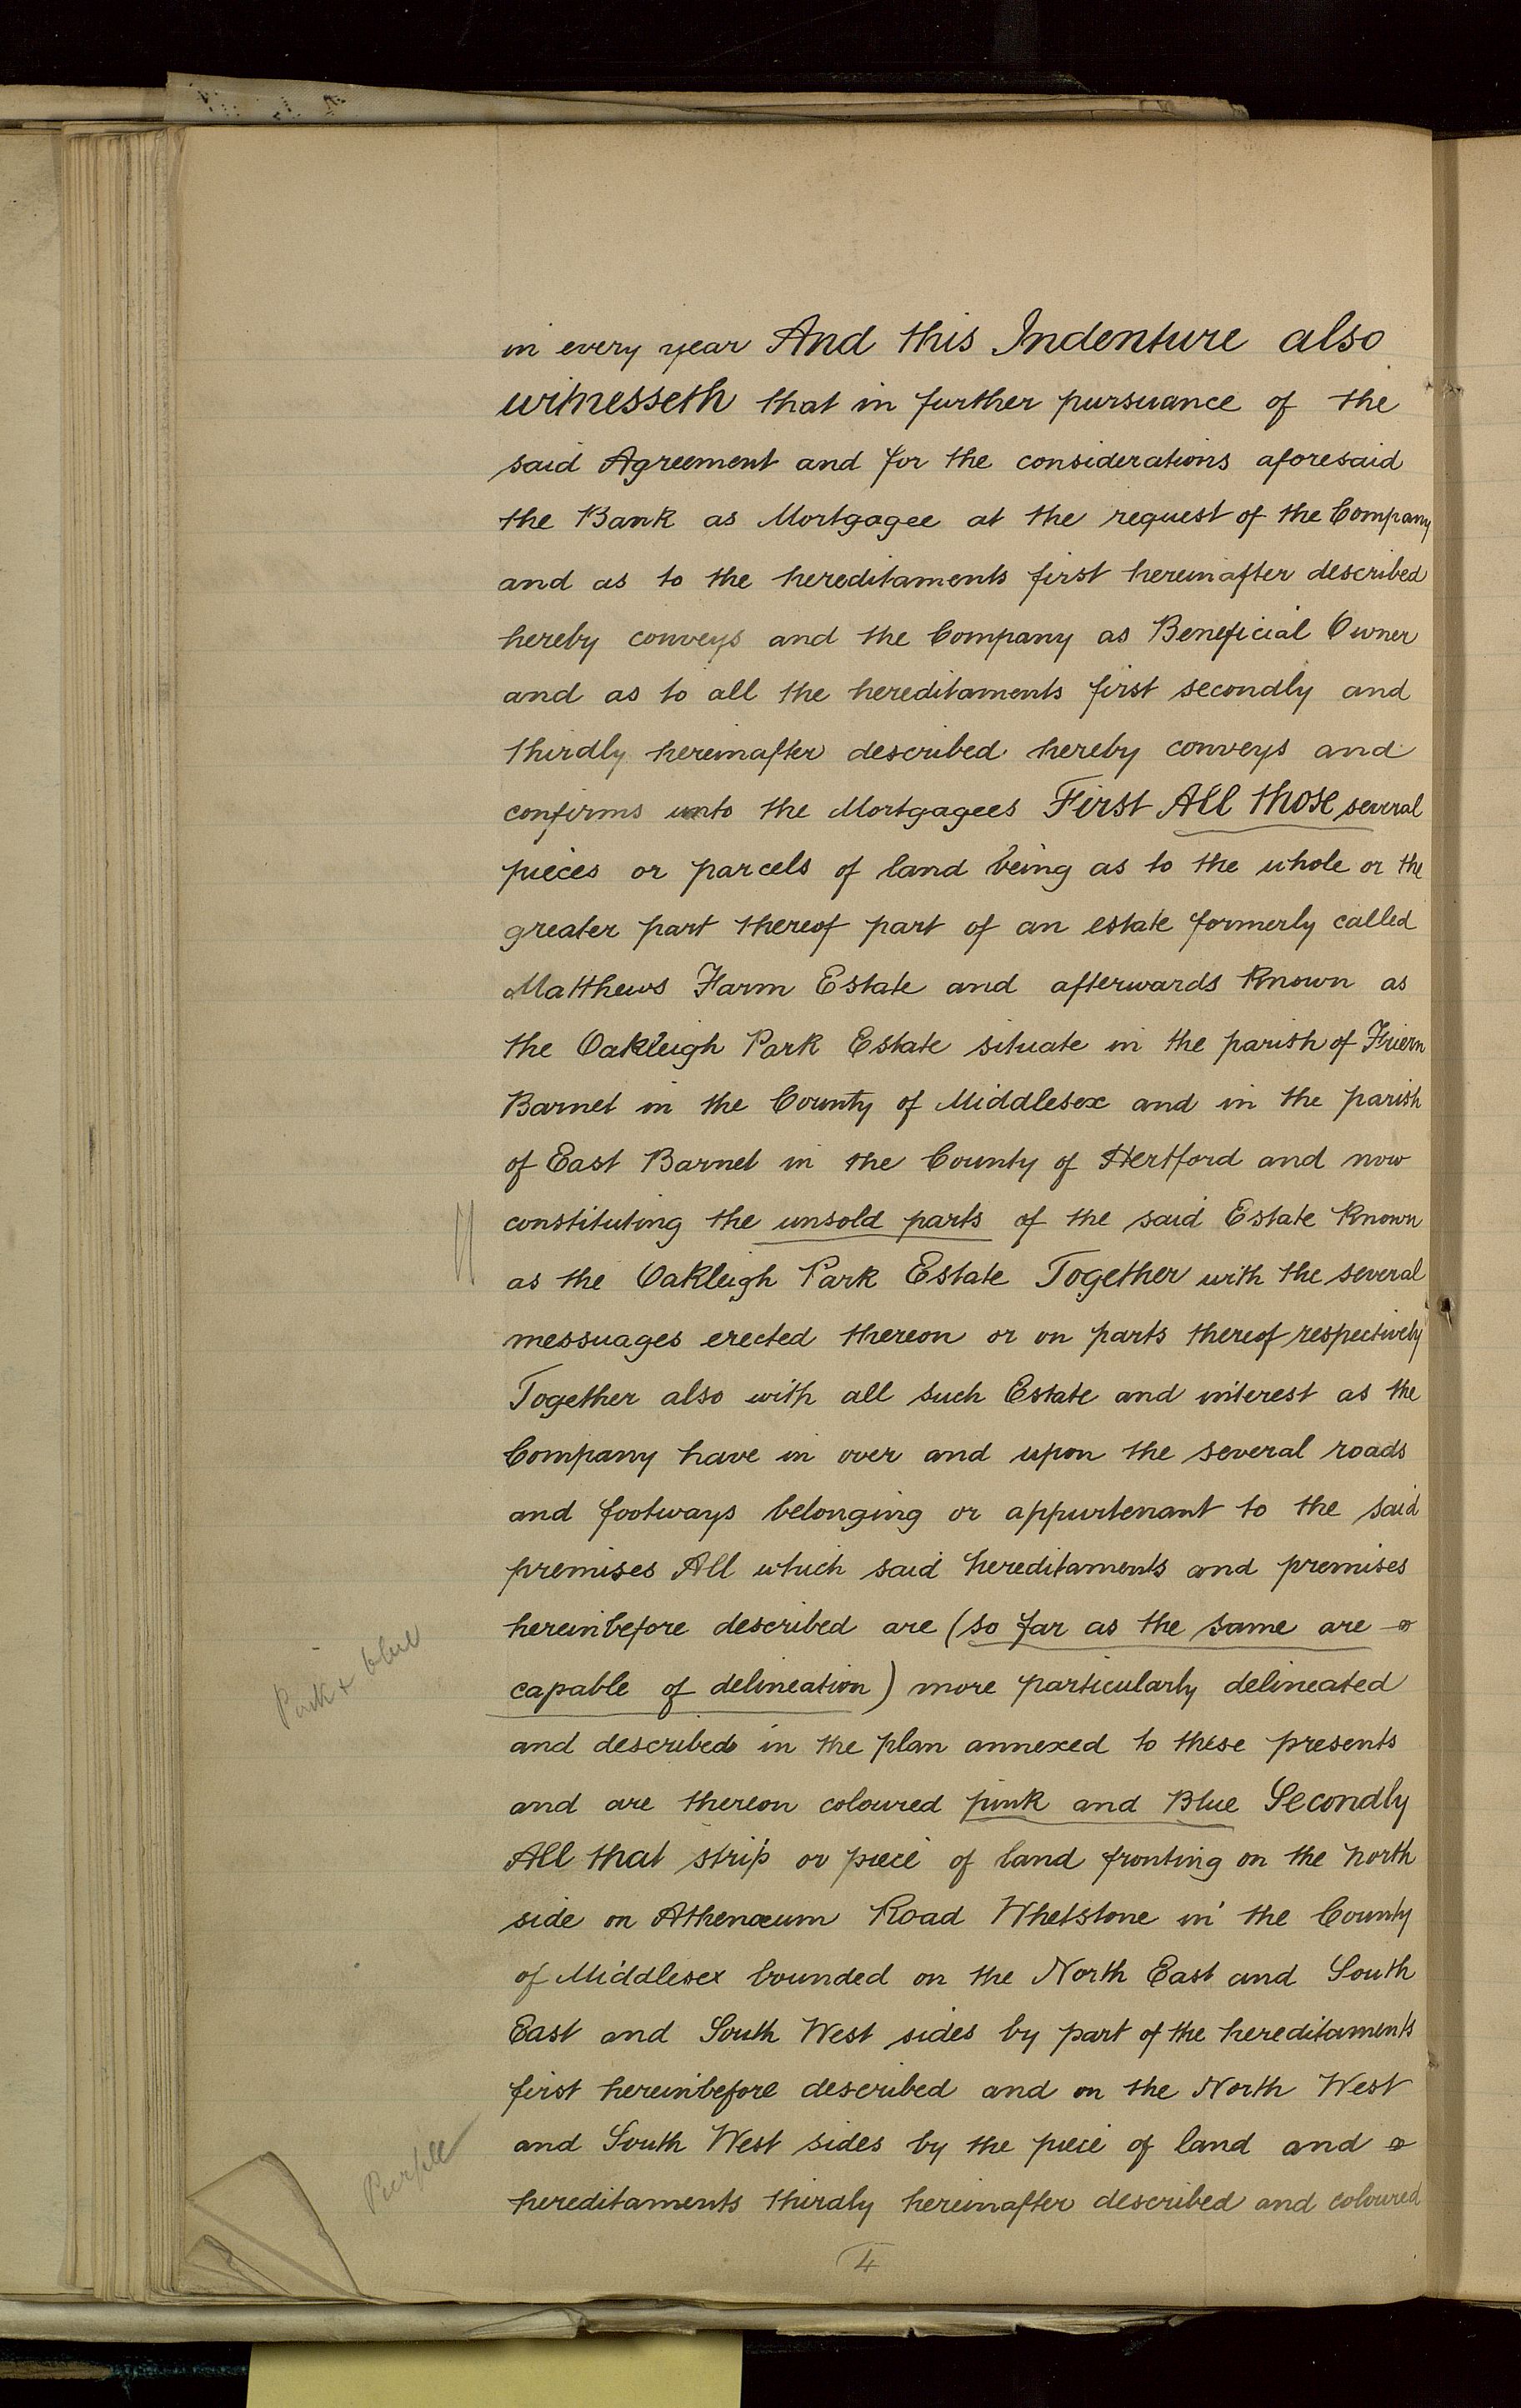 in every year And this Indenture also
witnesseth that in further pursuance of the
said Agreement and for the considerations aforesaid
the Bank as Mortgagee at the request of the Company
and as to the hereditaments first hereinafter described
hereby conveys and the Company as Beneficial Owner
and as to all the hereditaments first secondly and
thirdly hereinafter described hereby conveys and
confirms unto the Mortgagees First All those several
pieces or parcels of land being as to the whole or the
greater part thereof part of an estate formerly called
Matthews Farm Estate and afterwards known as
the Oakleigh Park Estate situate in the parish of Friern
Barnet in the County of Middlesex and in the parish
of East Barnet in the County of Hertford and now
constituting the unsold parts of the said Estate known
as the Oakleigh Park Estate Together with the several
messuages erected thereon or on parts thereof respectively
Together also with all such Estate and interest as the
Company have in over and upon the several roads
and footways belonging or appurtenant to the said
premises All which said hereditaments and premises
hereinbefore described are (so far as the same are
Pink + blue
capable of delineation) more particularly delineated
and described in the plan annexed to these presents
and are thereon coloured pink and Blue Secondly
All that strip or piece of land fronting on the north
side on Athenæum Road Whetstone in the County
of Middlesex bounded on the North East and South
East and South West sides by part of the hereditaments
first hereinbefore described and on the North West
and South West sides by the piece of land and
Purple
hereditaments thirdly hereinafter described and coloured
4